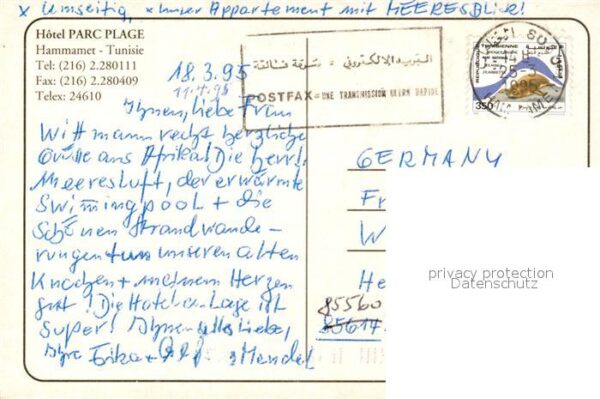 x Umseitig, x unser Appartement mit MEERESBlick!
Hôtel PARC PLAGE
Hammamet - Tunisie
Tel: (216) 2.280111
Fax: (216) 2.280409
Telex: 24610
18.3.95
11.4.95
Ihnen, liebe Frau
Wittmann recht herzliche
Grüße aus Afrika! Die herrl.
Meeresluft, der erwärmte
Swimingpool + die
schönen Strandwande-
rungen tun unseren alten
Knochen + meinem Herzen
gut! Die Hotel-Anlage ist
super! Ihnen alles Liebe,
Ihre Erika + Mandel
البريد الإلكتروني = سرعة فائقة
POSTFAX = UNE TRANSMISSION ULTRA RAPIDE
TUNISIENNE
REPUBLIQUE
350
1995
GERMANY
Fr
W
He
85560
85614
privacy protection
Datenschutz